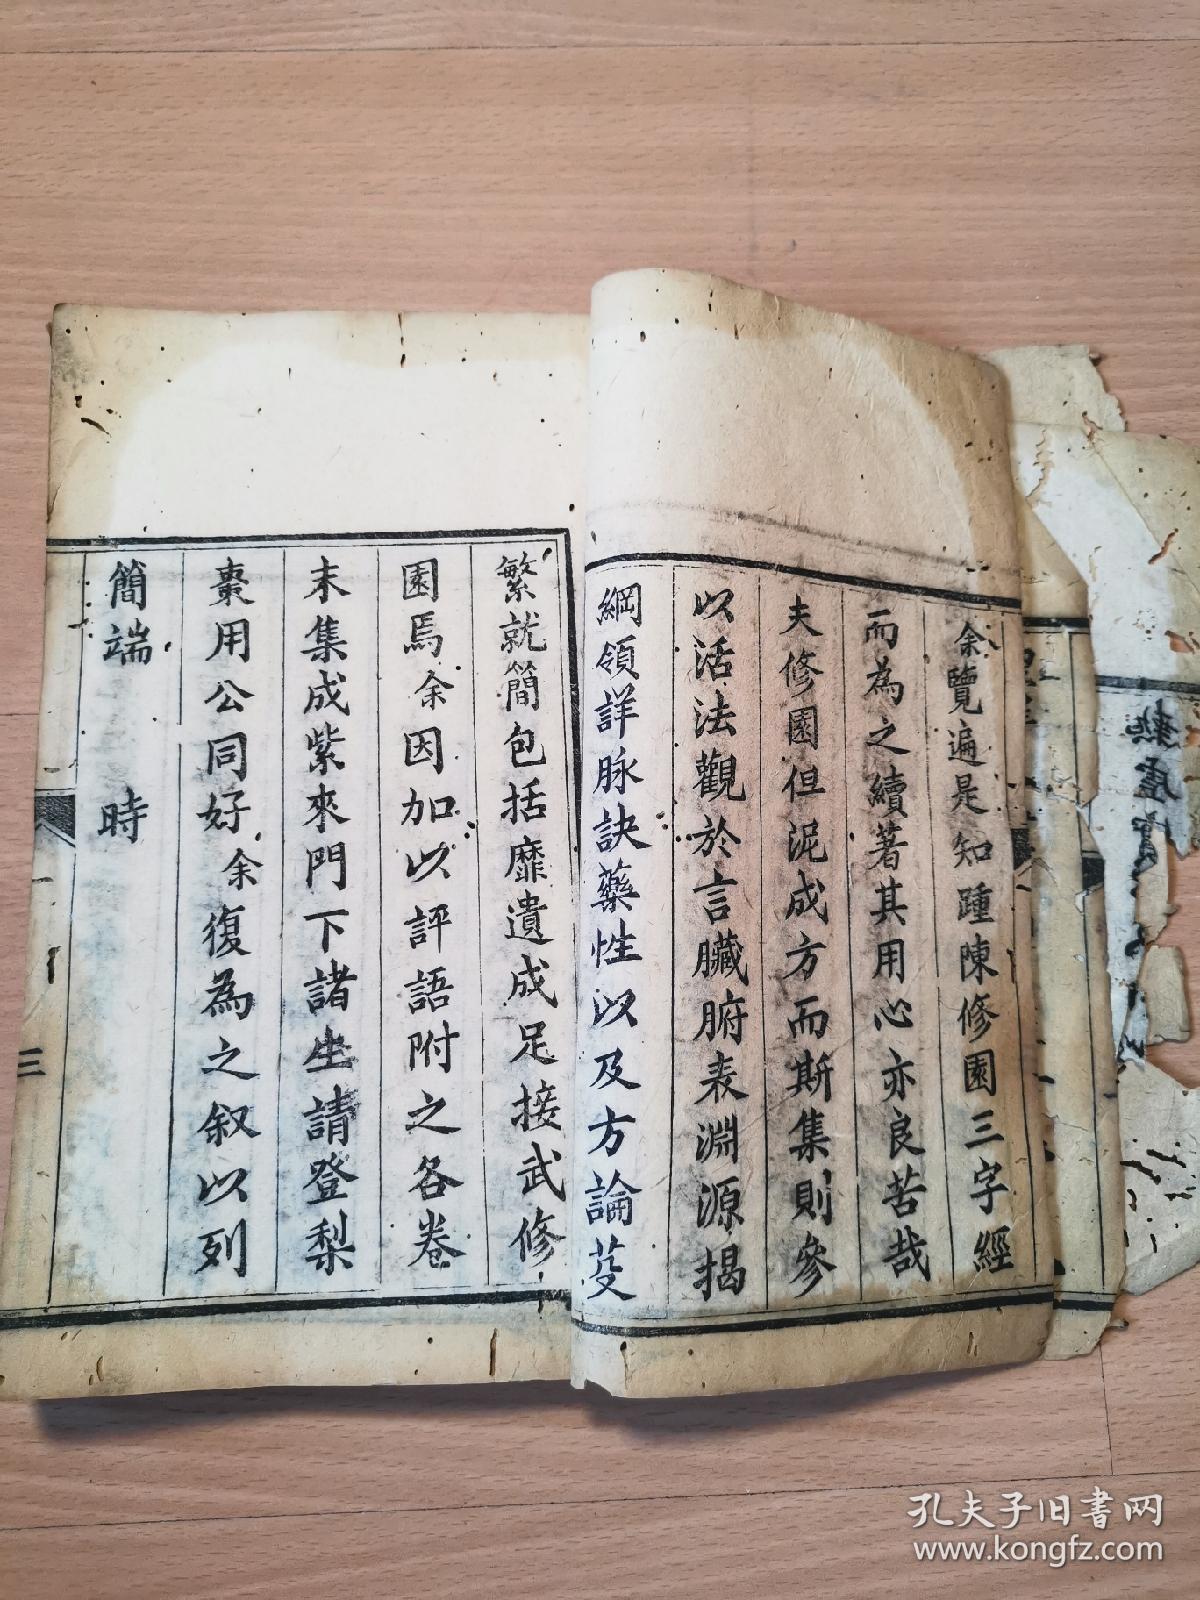 余覽遍是知踵陳修園三字經
而為之續著其用心亦良苦哉
夫修園但泥成方而斯集則參
以活法觀於言臟腑表淵源揭
綱領詳脉訣藥性以及方論芟
繁就簡包括靡遺成足接武修
園焉余因加以評語附之各卷
末集成紫來門下諸生請登梨
棗用公同好余復為之叙以列
簡端 時
三
孔夫子旧书网
www.kongfz.com